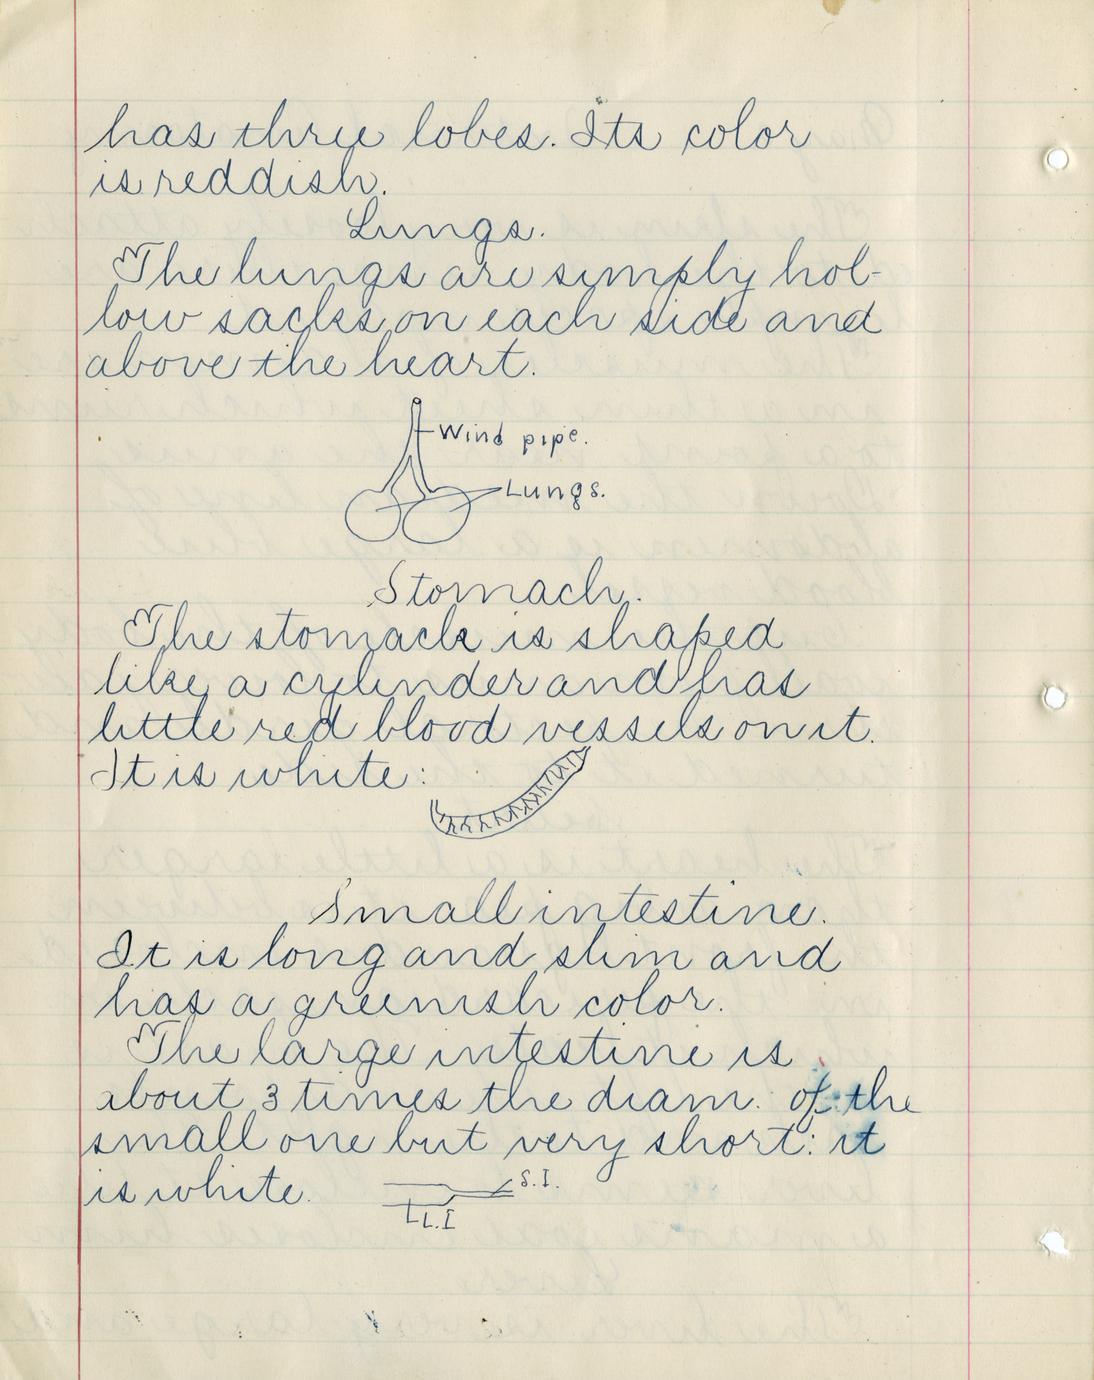 has three lobes. Its color
is reddish.
Lungs.
The lungs are simply hol-
low sacks on each side and
above the heart.
Wind pipe.
Lungs.
Stomach.
The stomack is shaped
like a cylinder and has
little red blood vessels on it.
It is white:
Small intestine.
It is long and slim and
has a greenish color.
The large intestine is
about 3 times the diam. of the
small one but very short: it
is white.
S.I.
L.I